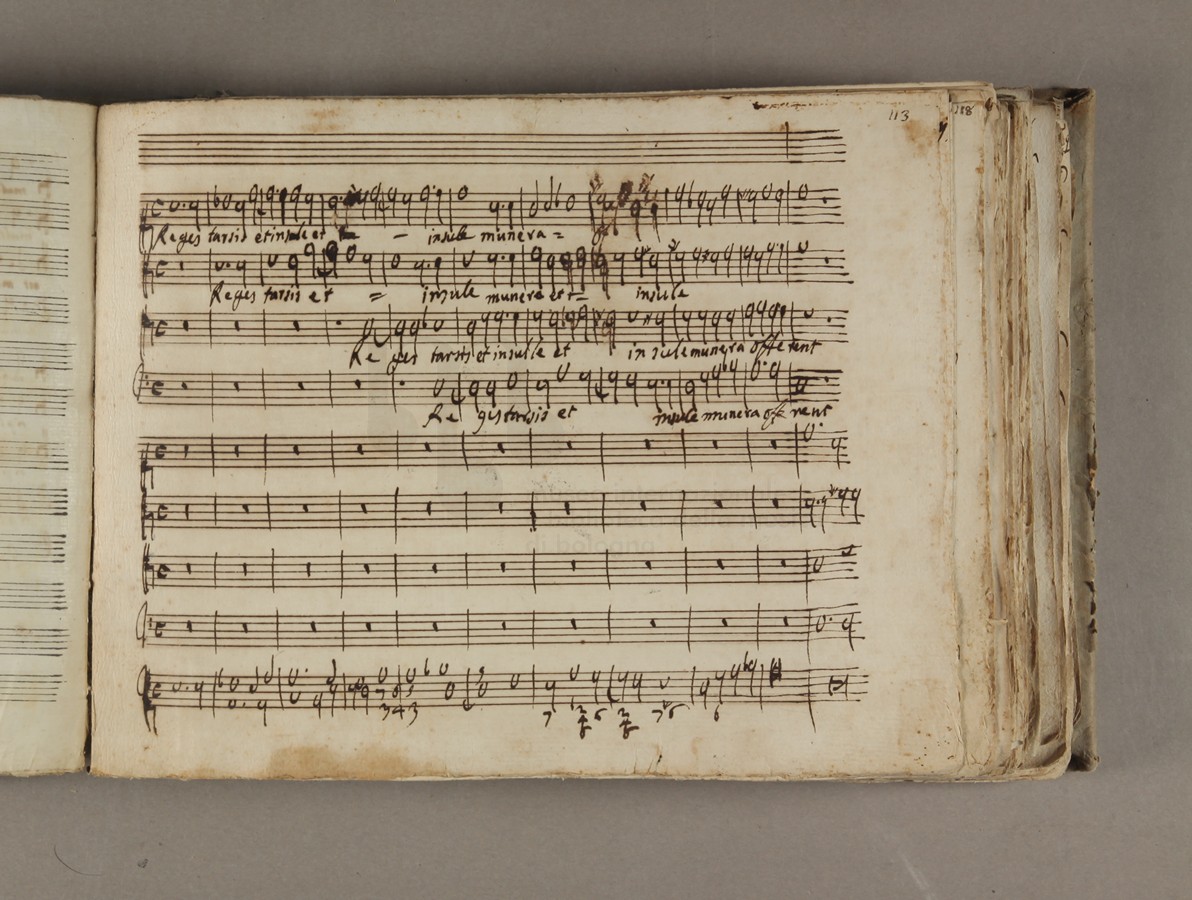 113 118
Reges tarsis et insule et - insule munera =
Reges tarsis et = insule munera et = insule
Re ges tarsis et insulle et insule munera offerent
Re gis tarsis et insule munera off rent
3 4 3 7 2 6 2 7 6 6